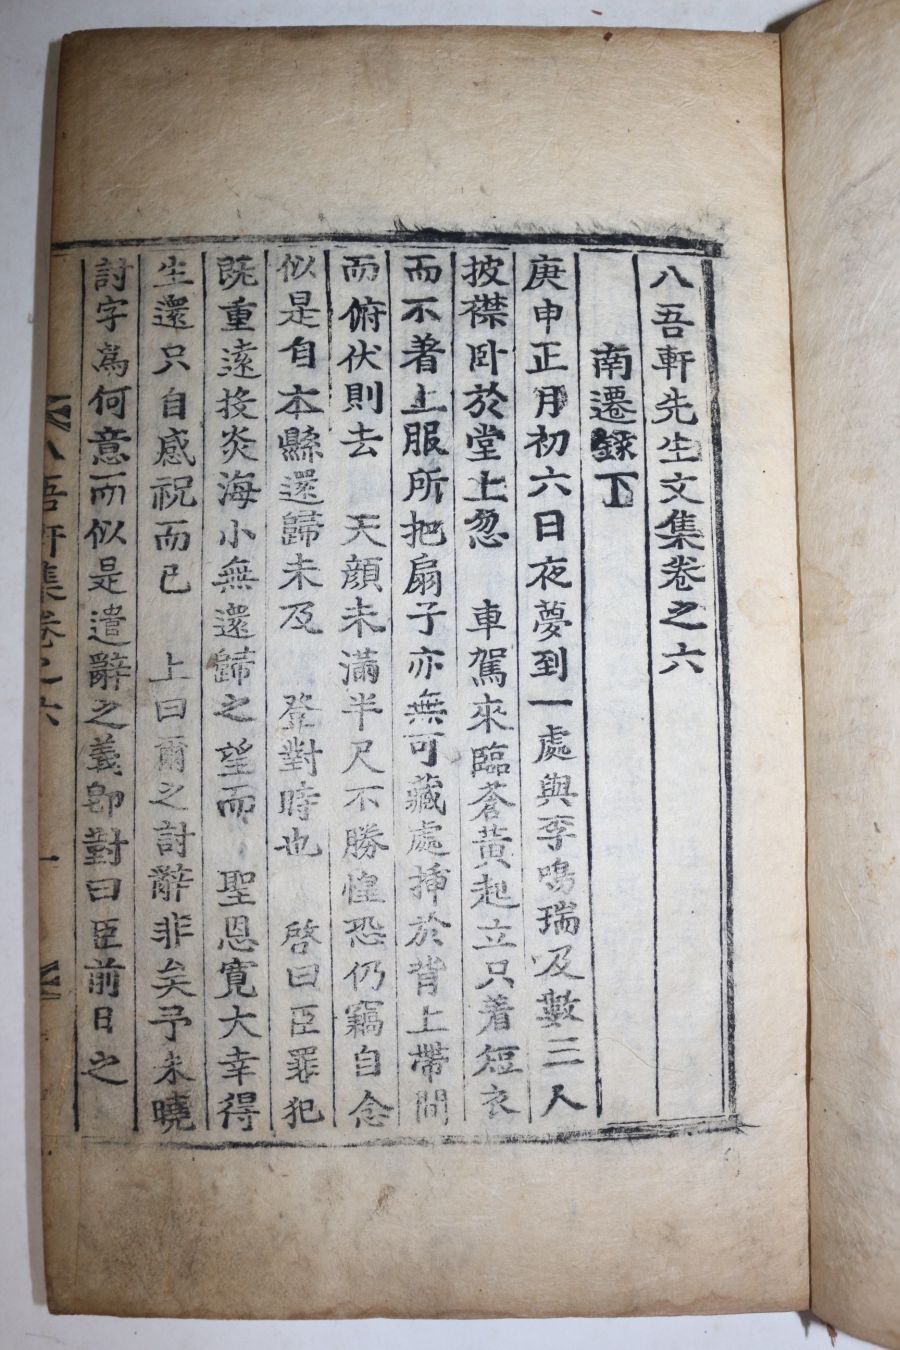 八吾軒先生文集卷之六
南遷錄下
庚申正月初六日夜夢到一處與李鳴瑞及數三人
披襟卧於堂上忽　車駕來臨蒼黃起立只着短衣
而不着上服所把扇子亦無可藏處揷於背上帶間
而俯伏則去　天顏未滿半尺不勝惶恐仍竊自念
似是自本縣還歸未及　登對時也　啓曰臣罪犯
旣重遠投炎海小無還歸之望而　聖恩寬大幸得
生還只自感祝而已　上曰爾之討辭非矣予未曉
討字爲何意而似是遣辭之義卽對曰臣前日之
八吾軒集卷之六　一